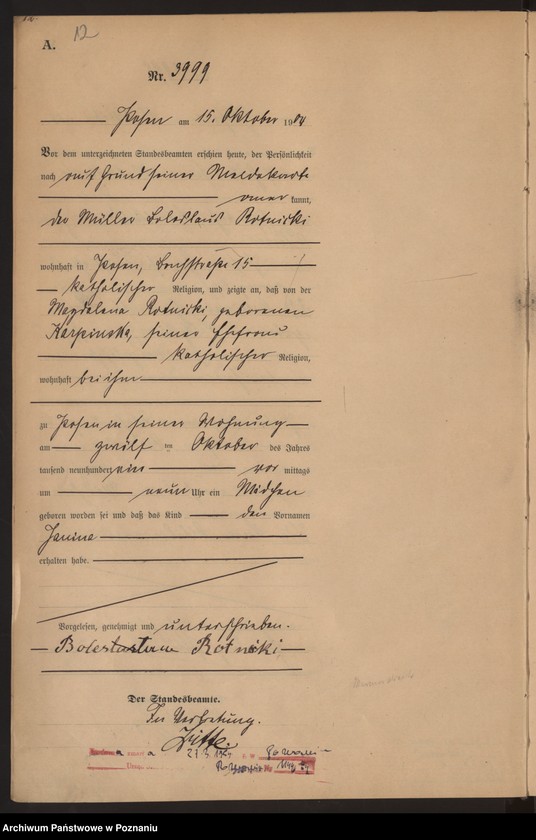 A.
12
Nr. 3999
Posen am 15. Oktober 1904
Vor dem unterzeichneten Standesbeamten erschien heute, der Persönlichkeit
nach auf Grund seiner Meldekarte
aner kannt,
der Müller Boleslaus Rotnicki
wohnhaft in Posen, Bachstraße 15
katholischer Religion, und zeigte an, daß von der
Magdalena Rotnicki, geborenen
Karpinska, seiner Ehefrau
katholischer Religion,
wohnhaft bei ihm
zu Posen in seiner Wohnung
am zwölf ten Oktober des Jahres
tausend neunhundert vier vor mittags
um neun Uhr ein Mädchen
geboren worden sei und daß das Kind den Vornamen
Janina
erhalten habe.
Vorgelesen, genehmigt und unterschrieben.
Rotnicki
Der Standesbeamte.
In Vertretung.
Archiwum Państwowe w Poznaniu
szukajwarchiwach.gov.pl